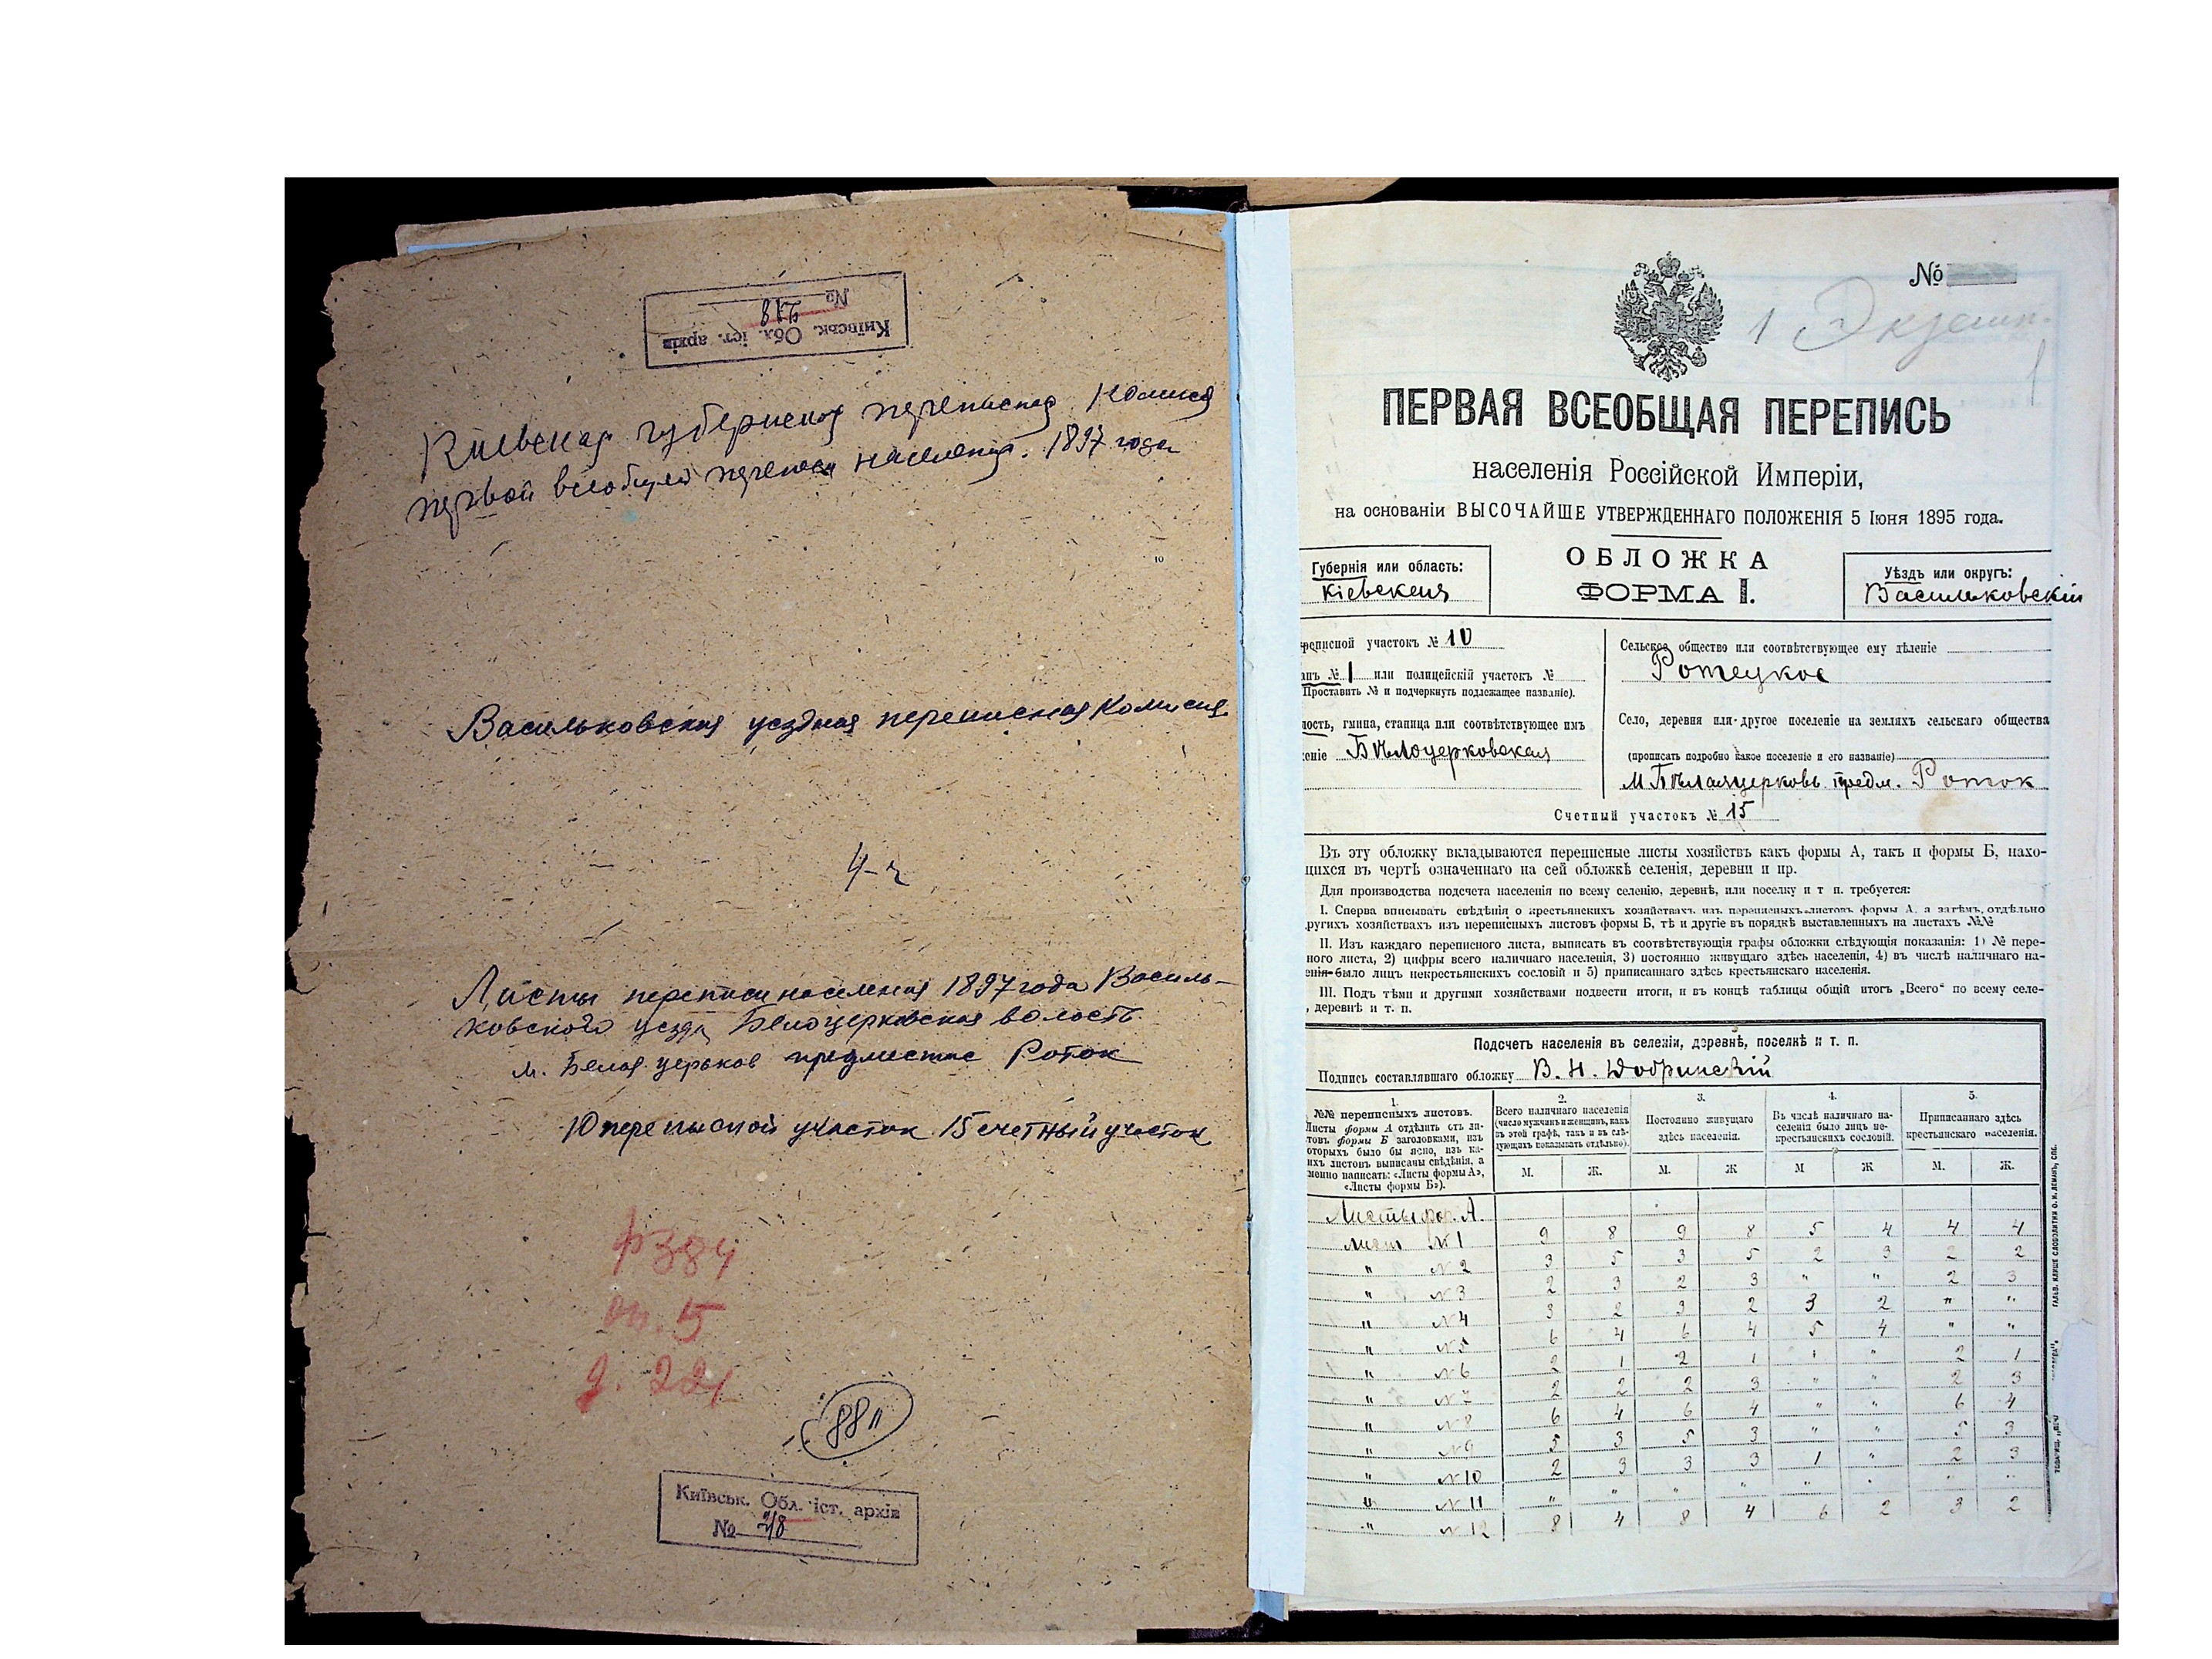 Київськ. Обл. іст. архів
№ 218
Киевская губернская переписная комисия
первой всеобщей переписи населения. 1897 года
10
Васильковская уездная переписная Комисия
Листы переписи населения 1897 года Василь-
ковского уезда Белоцерковская волость
м. Белая церьков предместие Роток
10 переписной участок 15 счетный участок
ф 384
оп. 5
д. 221
88 л
Київськ. Обл. іст. архів
№ 218
№
1 Экземп.
ПЕРВАЯ ВСЕОБЩАЯ ПЕРЕПИСЬ
населенія Россійской Имперіи,
на основаніи ВЫСОЧАЙШЕ УТВЕРЖДЕННАГО ПОЛОЖЕНІЯ 5 Іюня 1895 года.
ОБЛОЖКА
ФОРМА I.
Губернія или область:
Кіевская
Уѣздъ или округъ:
Васильковскій
реписной участокъ № 10
анъ № 1 или полицейскій участокъ №
Проставить № и подчеркнуть подлежащее названіе).
лость, гмина, станица или соотвѣтствующее имъ
еніе Бѣлоцерковская
Сельское общество или соотвѣтствующее ему дѣленіе
Ротецкое
Село, деревня или другое поселеніе на земляхъ сельскаго общества
(прописать подробно какое поселеніе и его названіе)
М Бѣлаяцерковь предм. Роток
Счетный участокъ № 15
Въ эту обложку вкладываются переписные листы хозяйствъ какъ формы А, такъ и формы Б, нахо-
щихся въ чертѣ означеннаго на сей обложкѣ селенія, деревни и пр.
Для производства подсчета населенія по всему селенію, деревнѣ, или поселку и т п. требуется:
I. Сперва вписывать свѣдѣнія о крестьянскихъ хозяйствахъ изъ переписныхъ листовъ формы А, а затѣмъ, отдѣльно
ругихъ хозяйствахъ изъ переписныхъ листовъ формы Б, тѣ и другіе въ порядкѣ выставленныхъ на листахъ №№
II. Изъ каждаго переписного листа, выписать въ соотвѣтствующія графы обложки слѣдующія показанія: 1) № пере-
ного листа, 2) цифры всего наличнаго населенія, 3) постоянно живущаго здѣсь населенія, 4) въ числѣ наличнаго на-
енія было лицъ некрестьянскихъ сословій и 5) приписаннаго здѣсь крестьянскаго населенія.
III. Подъ тѣми и другими хозяйствами подвести итоги, и въ концѣ таблицы общій итогъ „Всего“ по всему селе-
, деревнѣ и т. п.
Подсчетъ населенія въ селеніи, деревнѣ, поселкѣ и т. п.
Подпись составлявшаго обложку В. Н. Добринскій
1.
№№ переписныхъ листовъ.
Листы формы А отдѣлить отъ ли-
товъ формы Б заголовками, изъ
оторыхъ было бы ясно, изъ ка-
ихъ листовъ выписаны свѣдѣнія, а
менно написать: «Листы формы А»,
«Листы формы Б»).
2.
Всего наличнаго населенія
(число мужчинъ и женщинъ, какъ
въ этой графѣ, такъ и въ слѣ-
дующихъ показывать отдѣльно).
3.
Постоянно живущаго
здѣсь населенія.
4.
Въ числѣ наличнаго на-
селенія было лицъ не-
крестьянскихъ сословій.
5.
Приписаннаго здѣсь
крестьянскаго населенія.
М. Ж. М. Ж М Ж М. Ж.
Листы фор. А.
лист №1 9 8 9 8 5 4 4 4
" №2 3 5 3 5 2 3 2 2
" №3 2 3 2 3 " " 2 3
" №4 3 2 3 2 3 2 " "
" №5 6 4 6 4 5 4 " "
" №6 2 1 2 1 " " 2 1
" №7 2 2 2 3 " " 2 3
" №8 6 4 6 4 " " 6 4
" №9 5 3 5 3 " " 5 3
" №10 2 3 3 3 1 " 2 3
" №11 " " " " " " " "
" №12 8 4 8 4 6 2 3 2